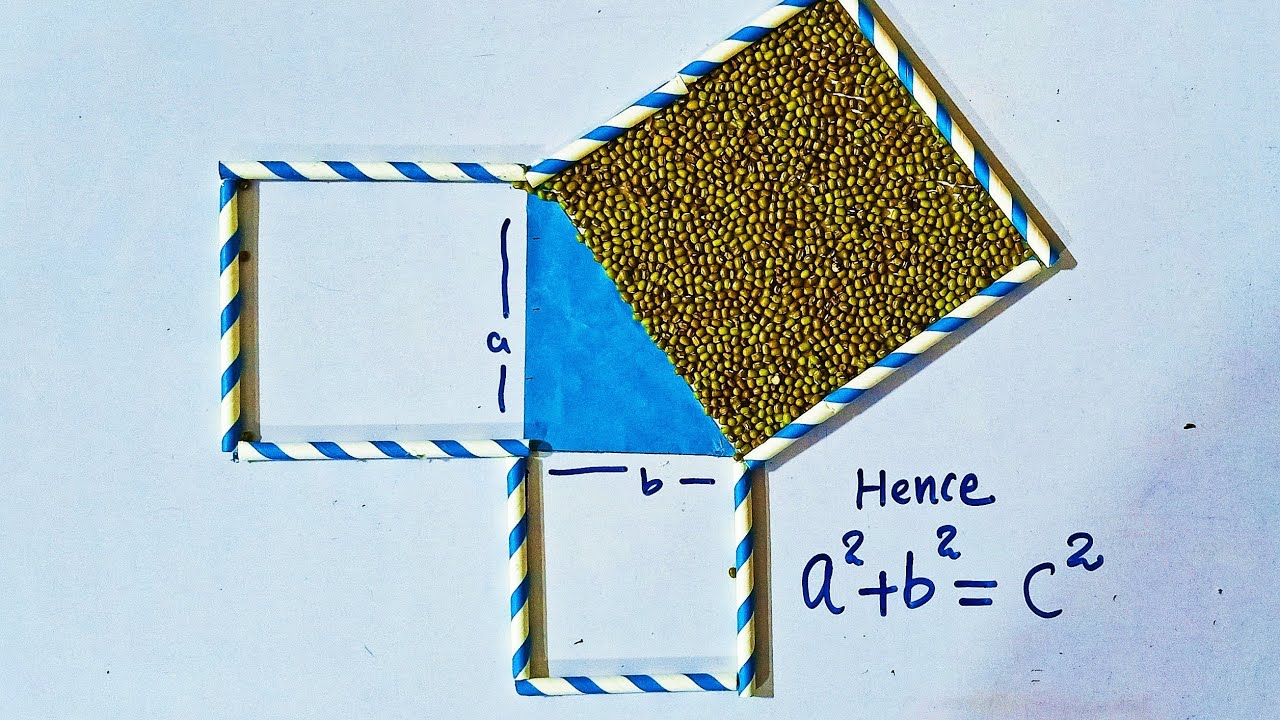 a
b
Hence
a² + b² = c²